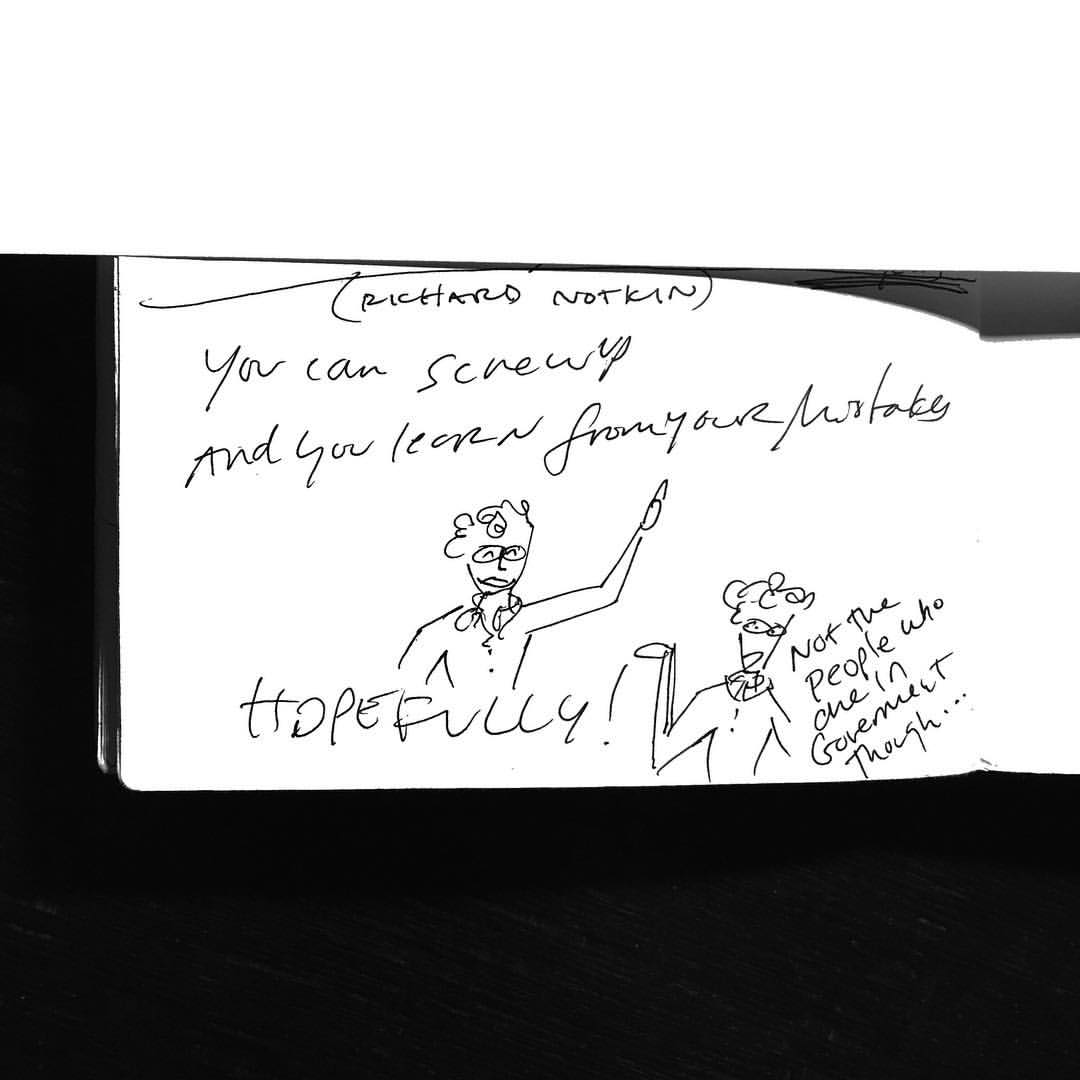 (RICHARD NOTKIN)
You can screw up
And you learn from your Mistakes
HOPEFULLY!
Not the
people who
are in
Goverment
Though...